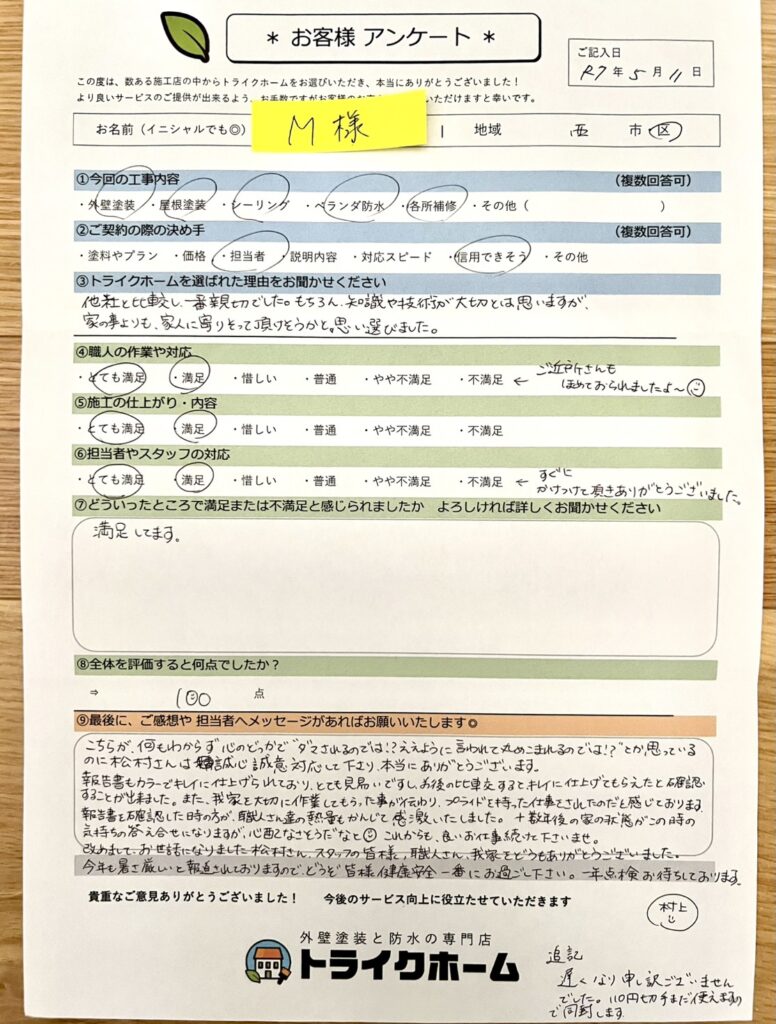 * お客様 アンケート *
ご記入日
R7 年 5 月 11 日
この度は、数ある施工店の中からトライクホームをお選びいただき、本当にありがとうございました！
より良いサービスのご提供が出来るよう、お手数ですがお客様の いただけますと幸いです。
お名前（イニシャルでも◎） M 様 地域 西 市 区
①今回の工事内容 （複数回答可）
・外壁塗装 ・屋根塗装 ・シーリング ・ベランダ防水 ・各所補修 ・その他（ ）
②ご契約の際の決め手 （複数回答可）
・塗料やプラン ・価格 ・担当者 ・説明内容 ・対応スピード ・信用できそう ・その他
③トライクホームを選ばれた理由をお聞かせください
他社と比較し、一番親切でした。もちろん、知識や技術が大切とは思いますが、
家の事よりも、家人に寄りそって頂けそうかと。思い選びました。
④職人の作業や対応
・とても満足 ・満足 ・惜しい ・普通 ・やや不満足 ・不満足 ← ご近所さんも
ほめておられましたよ〜
⑤施工の仕上がり・内容
・とても満足 ・満足 ・惜しい ・普通 ・やや不満足 ・不満足
⑥担当者やスタッフの対応
・とても満足 ・満足 ・惜しい ・普通 ・やや不満足 ・不満足 ← すぐに
かけつけて頂きありがとうございました。
⑦どういったところで満足または不満足と感じられましたか よろしければ詳しくお聞かせください
満足してます。
⑧全体を評価すると何点でしたか？
⇒ 100 点
⑨最後に、ご感想や 担当者へメッセージがあればお願いいたします◎
こちらが、何もわからず心のどっかで"ダマされるのでは!?ええように言われて丸めこまれるのでは!?"とか思っている
のに松村さんは 誠心誠意対応して下り、本当にありがとうございます。
報告書もカラーでキレイに仕上げられており、とても見易いですし、お後の比較するとキレイに仕上げてもらえたと確認
することが出来ました。また、我家を大切に作業してもらった事が伝わり、プライドを持った仕事されたのだと感じております。
報告書を確認した時の方が、職人さん達の熱量もかんじて感激いたしました。十数年後の家の状態がこの時の
気持ちの答え合せになりますが、心配なさそうだなと これからも、良いお仕事続けて下さいませ。
改めまして、お世話になりました松村さん、スタッフの皆様、職人さん、我家をどうもありがとうございました。
今年も暑さ厳しいと報道されておりますので、どうぞ皆様健康安全一番にお過ご下さい。一年点検お待ちしております。
貴重なご意見ありがとうございました！ 今後のサービス向上に役立たせていただきます
村上
外壁塗装と防水の専門店
トライクホーム
追記
遅くなり申し訳ございません
でした。110円切手まだ使えますの
で同封します